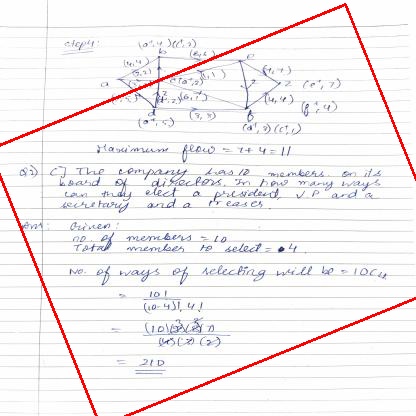 Step 4:
(a+, 4) (c+, 2)
b
(6,6)
c
(4,4)
(3,2)
a
(1,1)
(4,4)
z
(e+, 7)
(6,7)
(4,4)
(f+, 4)
d
(a+, 5)
(3,3)
f
Maximum flow = 7+4 = 11
Q3) C] The company has 10 members on its
board of directors. In how many ways
can they elect a president, V.P and a
secretary and a
Ans: Given:
no. of members = 10
Total member to select = 4
No. of ways of selecting will be = 10C4
= 10!
(10-4)! 4!
=
= 210